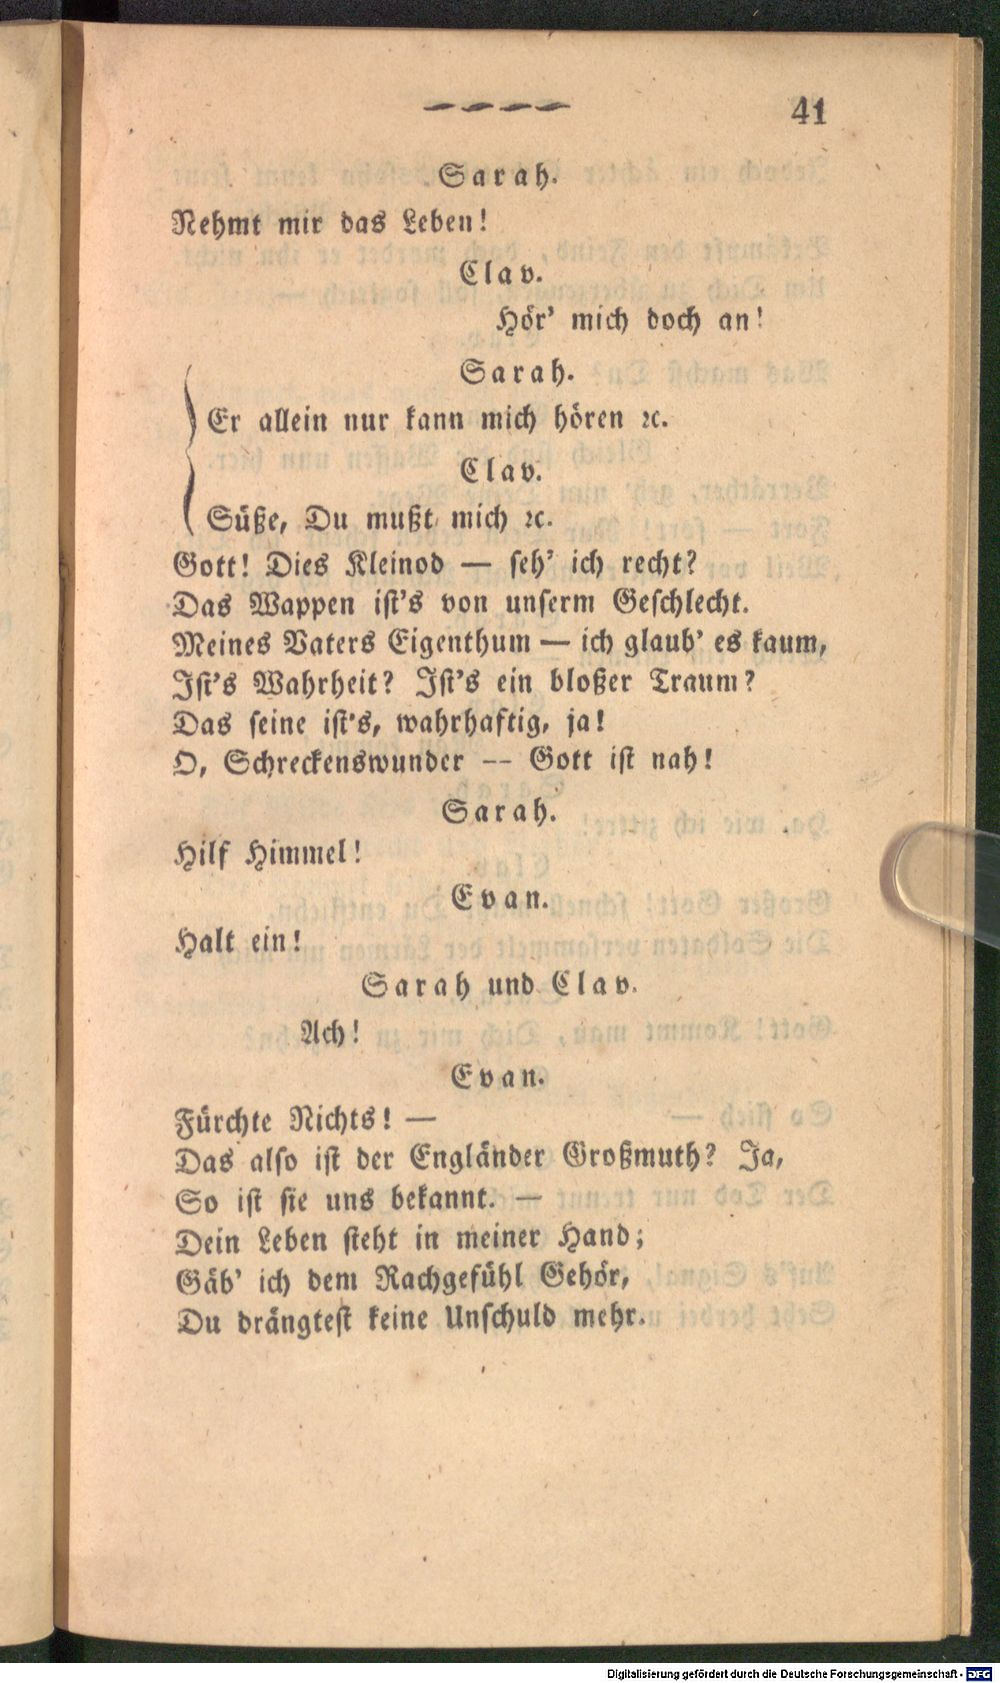 41
Sarah.
Nehmt mir das Leben!
Clav.
Hör' mich doch an!
Sarah.
Er allein nur kann mich hören ꝛc.
Clav.
Süße, Du mußt mich ꝛc.
Gott! Dies Kleinod — seh' ich recht?
Das Wappen ist's von unserm Geschlecht.
Meines Vaters Eigenthum — ich glaub' es kaum,
Ist's Wahrheit? Ist's ein bloßer Traum?
Das seine ist's, wahrhaftig, ja!
O, Schreckenswunder -- Gott ist nah!
Sarah.
Hilf Himmel!
Evan.
Halt ein!
Sarah und Clav.
Ach!
Evan.
Fürchte Nichts! —
Das also ist der Engländer Großmuth? Ja,
So ist sie uns bekannt. —
Dein Leben steht in meiner Hand;
Gäb' ich dem Rachgefühl Gehör,
Du drängtest keine Unschuld mehr.
Digitalisierung gefördert durch die Deutsche Forschungsgemeinschaft - DFG